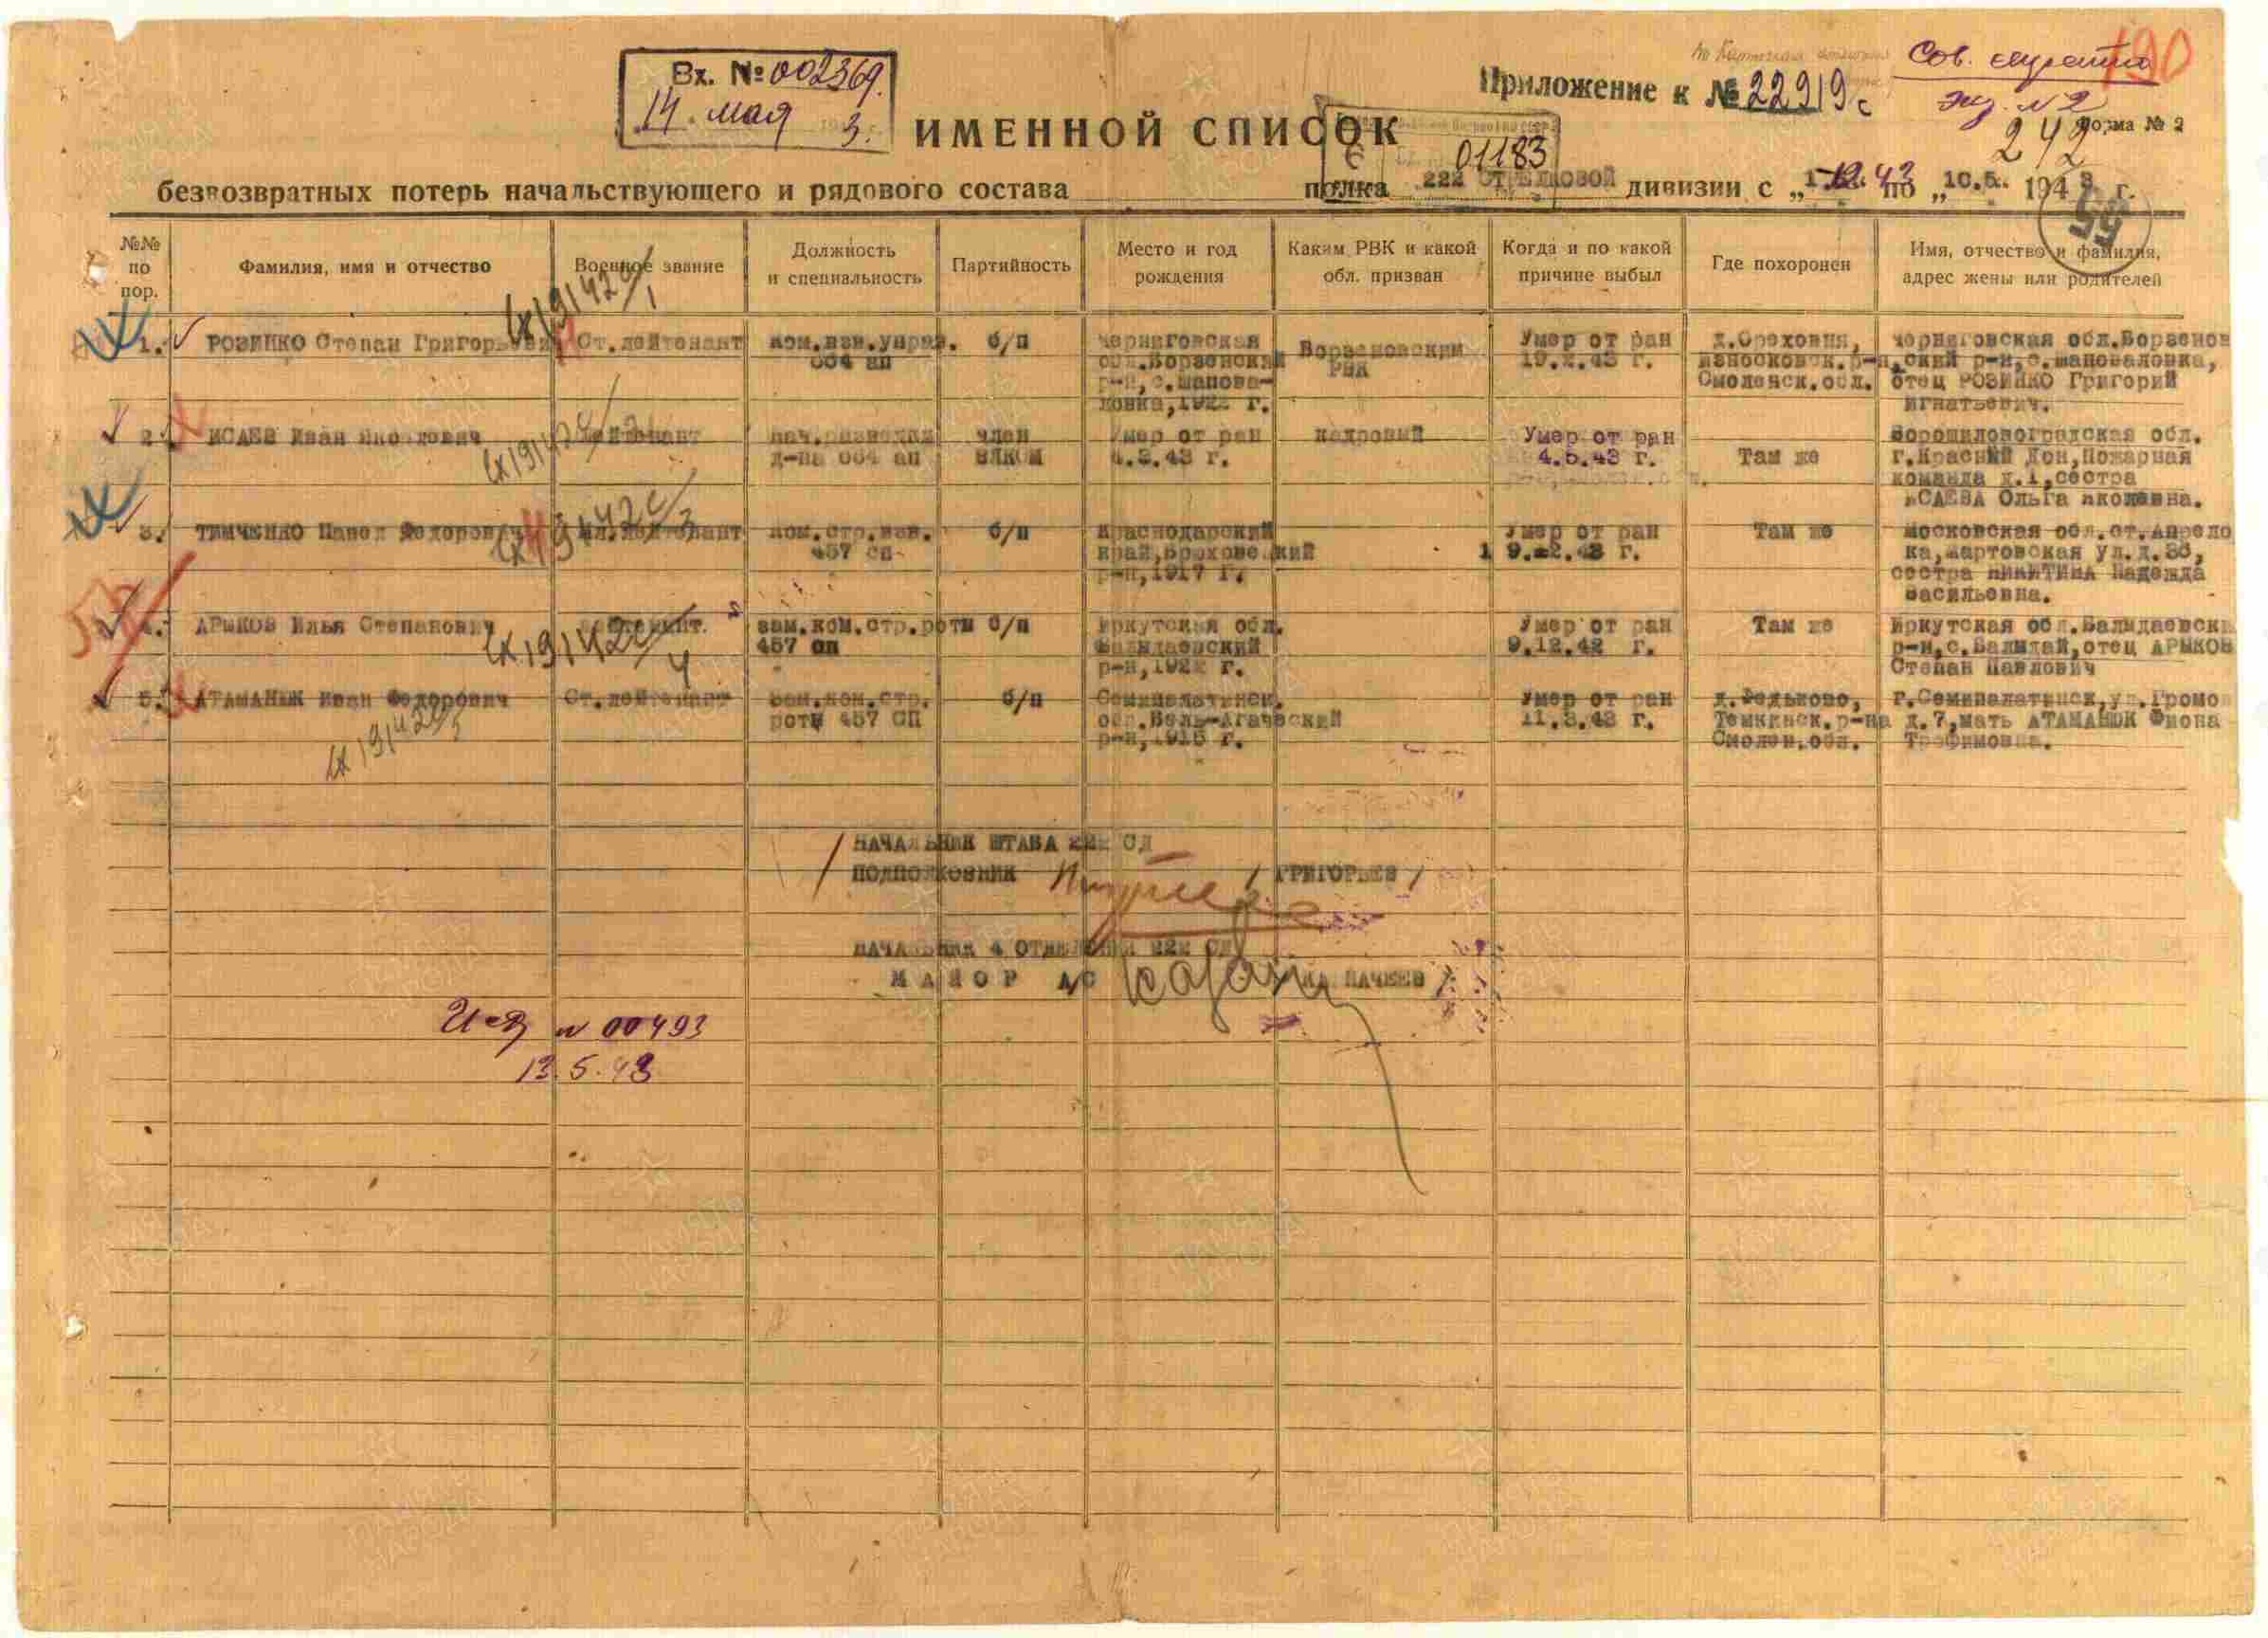 Вх. № 002369.
14. мая 3.
Приложение к № 22919с
Сов. секретно
190
экз. № 2
Форма № 2
242
ИМЕННОЙ СПИСОК
01183
безвозвратных потерь начальствующего и рядового состава полка 222 СТРЕЛКОВОЙ дивизии с „ по „10.5. 1943 г.
55
№№ по пор.
Фамилия, имя и отчество
Военное звание
Должность и специальность
Партийность
Место и год рождения
Каким РВК и какой обл. призван
Когда и по какой причине выбыл
Где похоронен
Имя, отчество и фамилия, адрес жены или родителей
1. РОЗИНКО Степан Григорьевич Ст.лейтенант ком.взв.управ. б/п Черниговская Борзеновским Умер от ран д.Ореховня, Черниговская обл.Борзенов
664 ап обл.Борзенский РВК 43 г. Износковск.р-н, ский р-н,с.Шаповаловка,
р-н,с.Шапова- Смоленск.обл. отец РОЗИНКО Григорий
ловка, г. Игнатьевич.
2. ИСАЕВ Иван Яковлович Лейтенант нач.разведки член Умер от ран кадровый Умер от ран Ворошиловоградская обл.
д-на 664 ап ВЛКСМ 43 г. 4.5.43 г. Там же г.Красний Дон,Пожарная
команда д.1,сестра
ИСАЕВА Ольга Яковлевна.
3. ТИМЧЕНКО Павел Федорович Мл.лейтенант ком.стр.взв. б/п Краснодарский Умер от ран Там же Московская обл.ст.Апрело
457 сп край, г. ка,Мартовская ул.д.36,
р-н,1917 г. сестра НИКИТИНА Надежда
Васильевна.
4. АРЫКОВ Илья Степанович Лейтенант. зам.ком.стр.роты б/п Иркутская обл. Умер от ран Там же Иркутская обл.
457 сп р-н, г. 9.12.42 г. р-н,с.Валыдай,отец АРЫКОВ
Степан Павлович
5. АТАМАНЮК Иван Федорович Ст.лейтенант зам.ком.стр. б/п Семипалатинск. Умер от ран д.Федьково, г.Семипалатинск,ул.Громов
роты 457 СП обл.Бель-Агачский 11.3.43 г. Темкинск.р-на д.7,мать АТАМАНЮК Фиона
р-н,1915 г. Смолен.обл. Трофимовна.
сх 19142с/1
сх 19142с/2
сх 19142с/3
сх 19142с/4
сх 19142с/5
НАЧАЛЬНИК ШТАБА 222 СД
ПОДПОЛКОВНИК / ГРИГОРЬЕВ /
НАЧАЛЬНИК 4 ОТДЕЛЕНИЯ 222 СД
МАЙОР А/С
Исх № 00493
13.5.43
ПАМЯТЬ НАРОДА